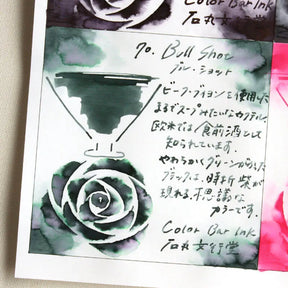 Color Bar Ink
石丸文行堂
70. Bull Shot
ブル・ショット
ビーフ・ブイヨンを使用した
まるでスープみたいなカクテル。
欧米では食前酒として
知られています。
やわらかくグリーンがかった
ブラックは、時折紫が
現れる、不思議な
カラーです。
Color Bar Ink
石丸文行堂